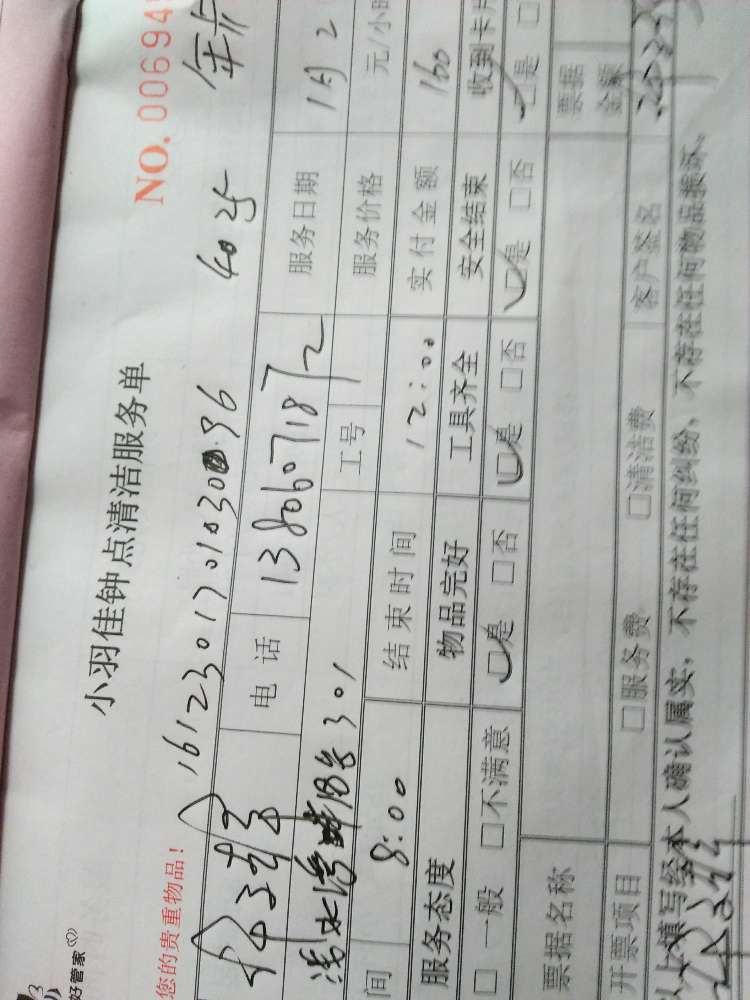 好管家
小羽佳钟点清洁服务单
NO. 00694
您的贵重物品！
16123017010300 96 4025 年卡
电话 13806071872 服务日期 1月2
301 工号 服务价格 元/小时
间 8:00 结束时间 12:00 实付金额 160
服务态度 物品完好 工具齐全 安全结束 收到卡片
□一般 □不满意 □是 □否 □是 □否 □是 □否 □是 □
票据名称 票据金额
开票项目 □服务费 □清洁费 客户签名
以上填写经本人确认属实，不存在任何纠纷，不存在任何物品损坏。